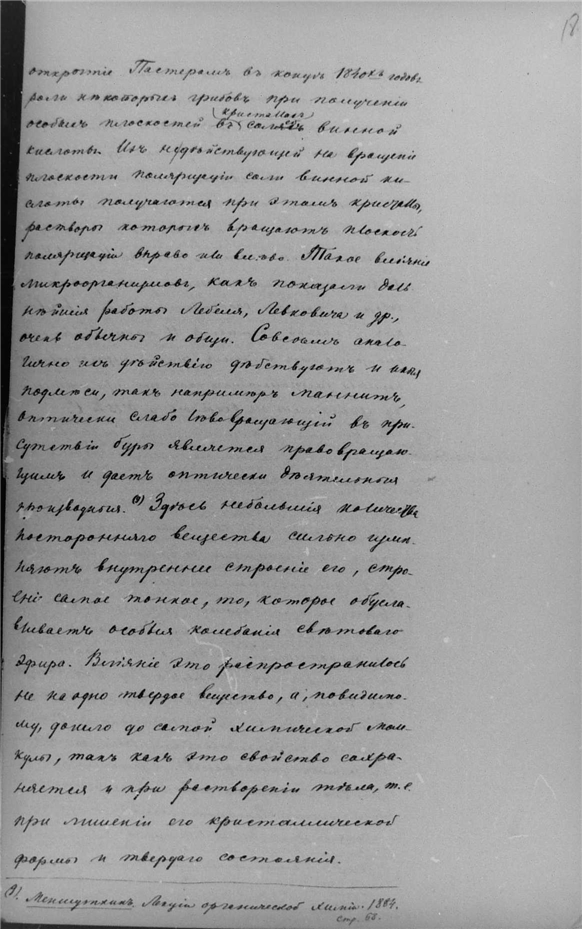 18.
открытіе Пастеромъ въ концѣ 1840хъ годовъ
роли нѣкоторыхъ грибовъ при полученіи
кристалловъ
особыхъ плоскостей въ соляхъ винной
кислоты. Изъ недѣйствующей на вращеніи
плоскости поляризаціи соли винной ки-
слоты получаются при этомъ кристаллы,
растворы которыхъ вращаютъ плоскость
поляризаціи вправо или влѣво. Такое вліяніе
микроорганизмовъ, какъ показали даль
нѣйшія работы Лебеля, Левковича и др.,
очень обычны и общи. Совсѣмъ анало-
гично ихъ дѣйствію дѣйствуютъ и иныя
подмѣси, такъ напримѣръ маннитъ,
оптически слабо лѣвовращающій въ при-
сутствіи буры является правовращаю-
щимъ и даетъ оптически дѣятельныя
производныя. Здѣсь небольшія количества
посторонняго вещества сильно измѣ-
няютъ внутреннее строеніе его, стро-
еніе самое тонкое, то, которое обусла-
вливаетъ особыя колебанія свѣтоваго
эфира. Вліяніе это распространилось
не на одно твердое вещество, а, повидимо-
му, дошло до самой химической моле-
кулы, такъ какъ это свойство сохра-
няется и при раствореніи тѣла, т.е.
при лишеніи его кристаллической
формы и твердаго состоянія.
Меншуткинъ. Лекціи органической химіи. 1884.
стр. 68.